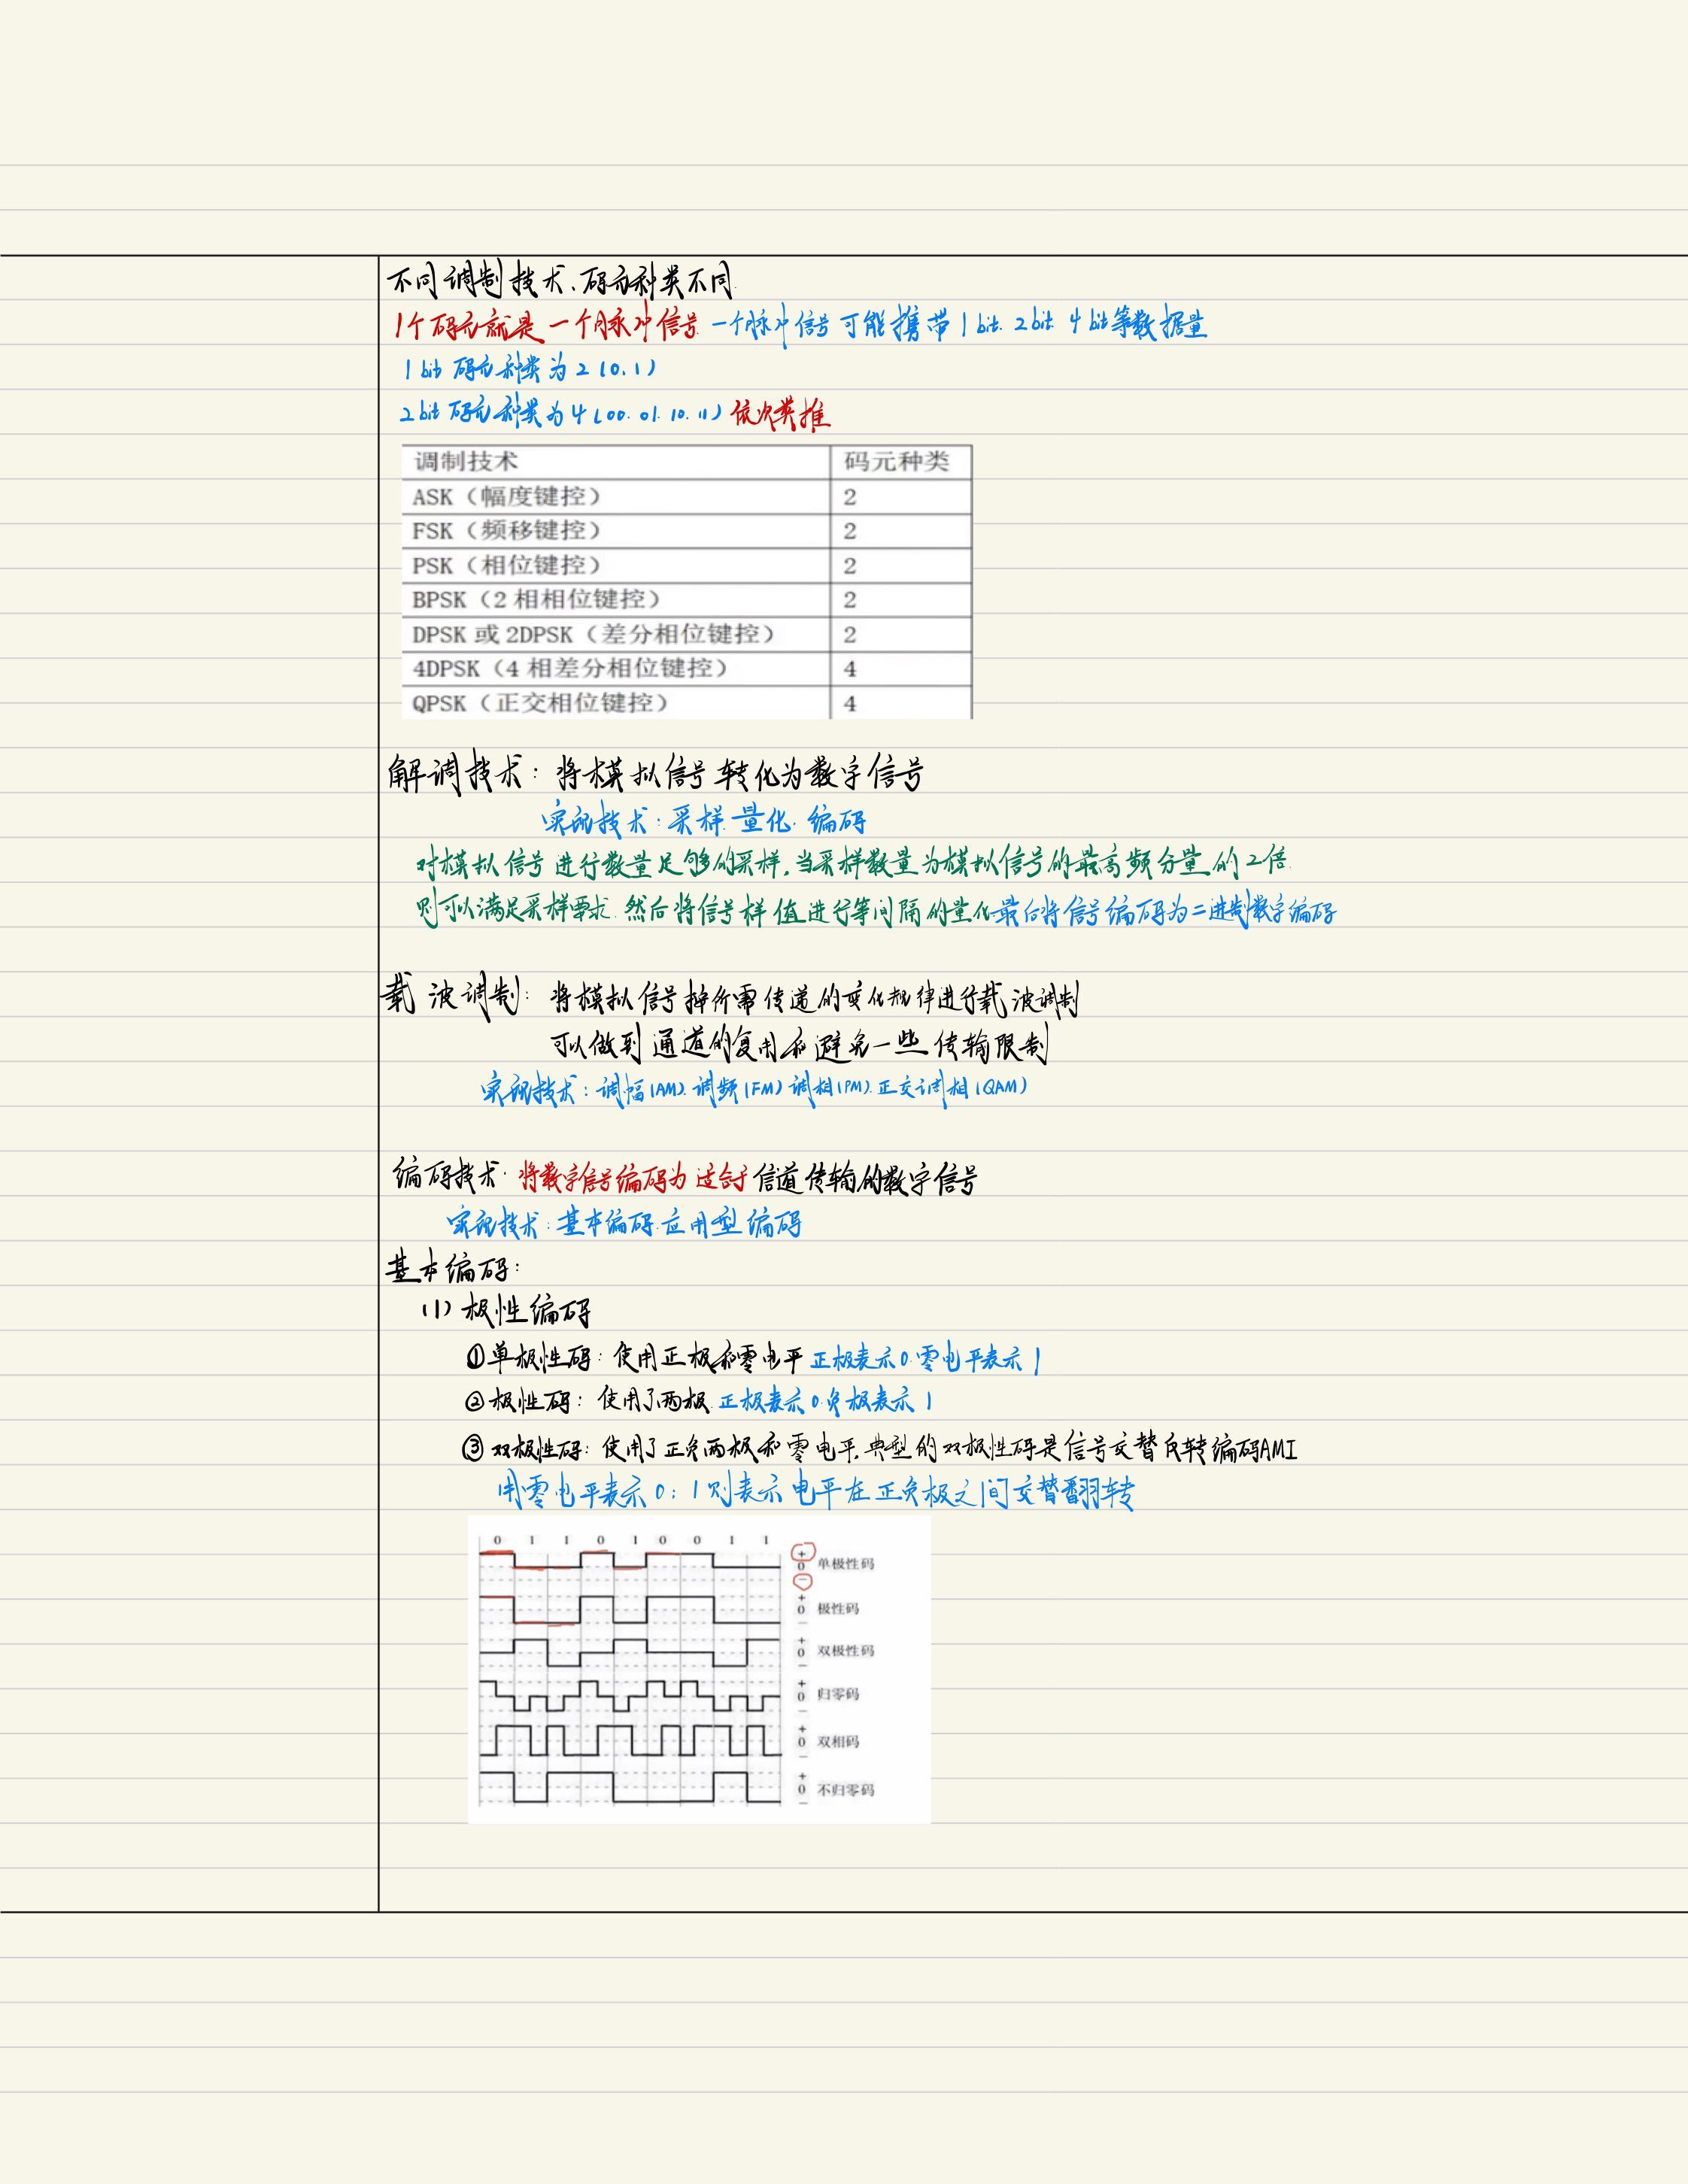 不同调制技术、码元种类不同.
1个码元就是一个脉冲信号.一个脉冲信号可能携带1bit.2bit.4bit等数据量
1bit码元种类为2(0.1)
2bit码元种类为4(00.01.10.11)依次类推
调制技术 码元种类
ASK(幅度键控) 2
FSK(频移键控) 2
PSK(相位键控) 2
BPSK(2相相位键控) 2
DPSK或2DPSK(差分相位键控) 2
4DPSK(4相差分相位键控) 4
QPSK(正交相位键控) 4
解调技术:将模拟信号转化为数字信号
实现技术:采样.量化.编码
对模拟信号进行数量足够的采样,当采样数量为模拟信号的最高频分量的2倍.
则可以满足采样要求.然后将信号样值进行等间隔的量化最后将信号编码为二进制数字编码
载波调制:将模拟信号按所需传递的变化规律进行载波调制
可以做到通道的复用和避免一些传输限制
实现技术:调幅(AM).调频(FM)调相(PM).正交调相(QAM)
编码技术:将数字信号编码为适合于信道传输的数字信号
实现技术:基本编码.应用型编码
基本编码:
(1)极性编码
①单极性码:使用正极和零电平 正极表示0.零电平表示1
②极性码:使用了两极.正极表示0.负极表示1
③双极性码:使用了正负两极和零电平.典型的双极性码是信号交替反转编码AMI
用零电平表示0;1则表示电平在正负极之间交替翻转
0 1 1 0 1 0 0 1 1
+
0 单极性码
−
+
0 极性码
−
+
0 双极性码
−
+
0 归零码
−
+
0 双相码
−
+
0 不归零码
−